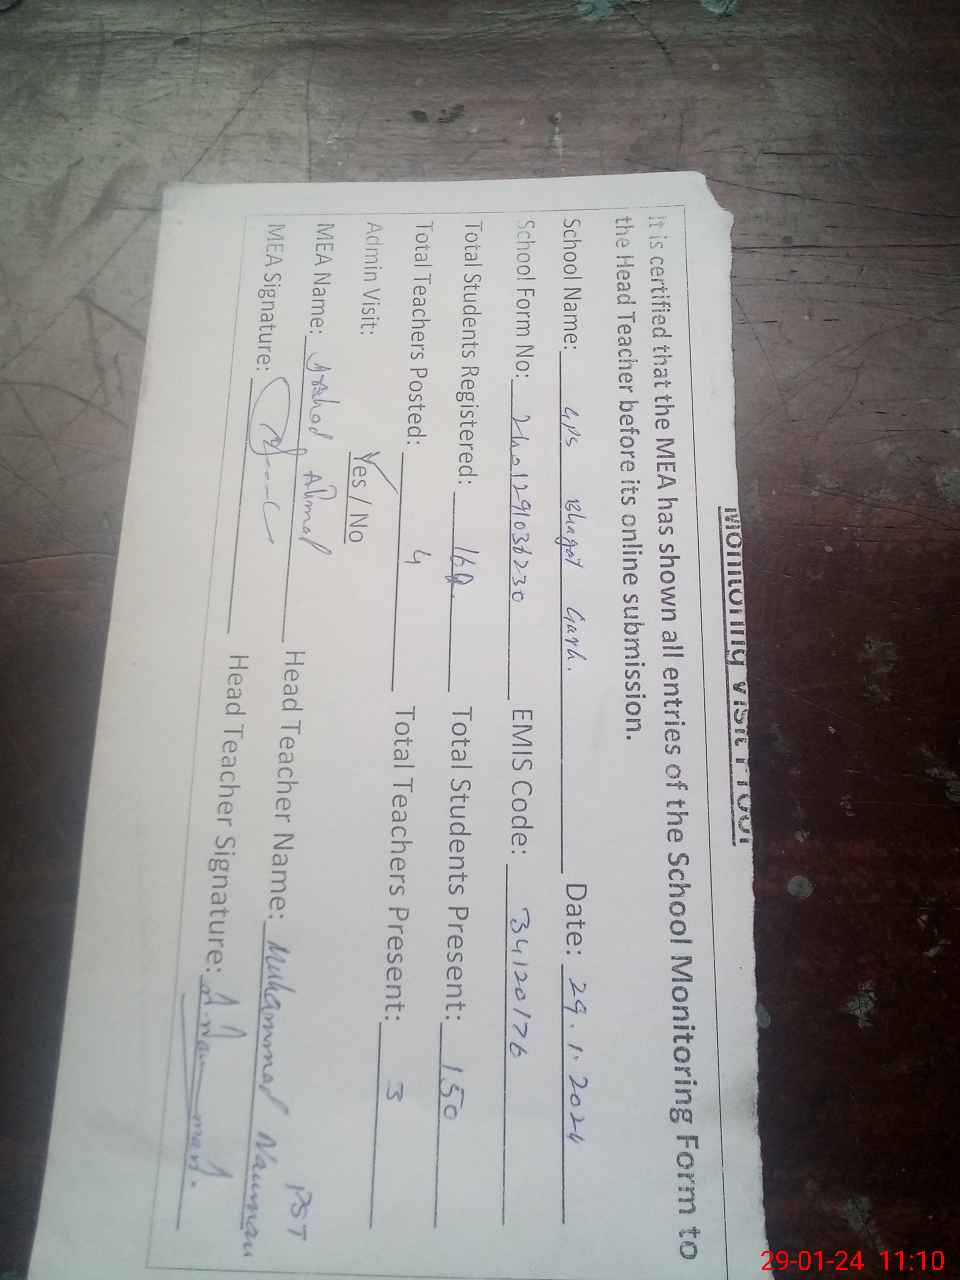 Monitoring Visit Proof
It is certified that the MEA has shown all entries of the School Monitoring Form to
the Head Teacher before its online submission.
School Name: GPS Bhagat Garh. Date: 29.1.2024
School Form No: EMIS Code: 34120176
Total Students Registered: Total Students Present: 150
Total Teachers Posted: 4 Total Teachers Present: 3
Admin Visit: Yes / No
PST
MEA Name: Ahmad Head Teacher Name: Muhammad Nauman
MEA Signature: Head Teacher Signature:
29-01-24 11:10